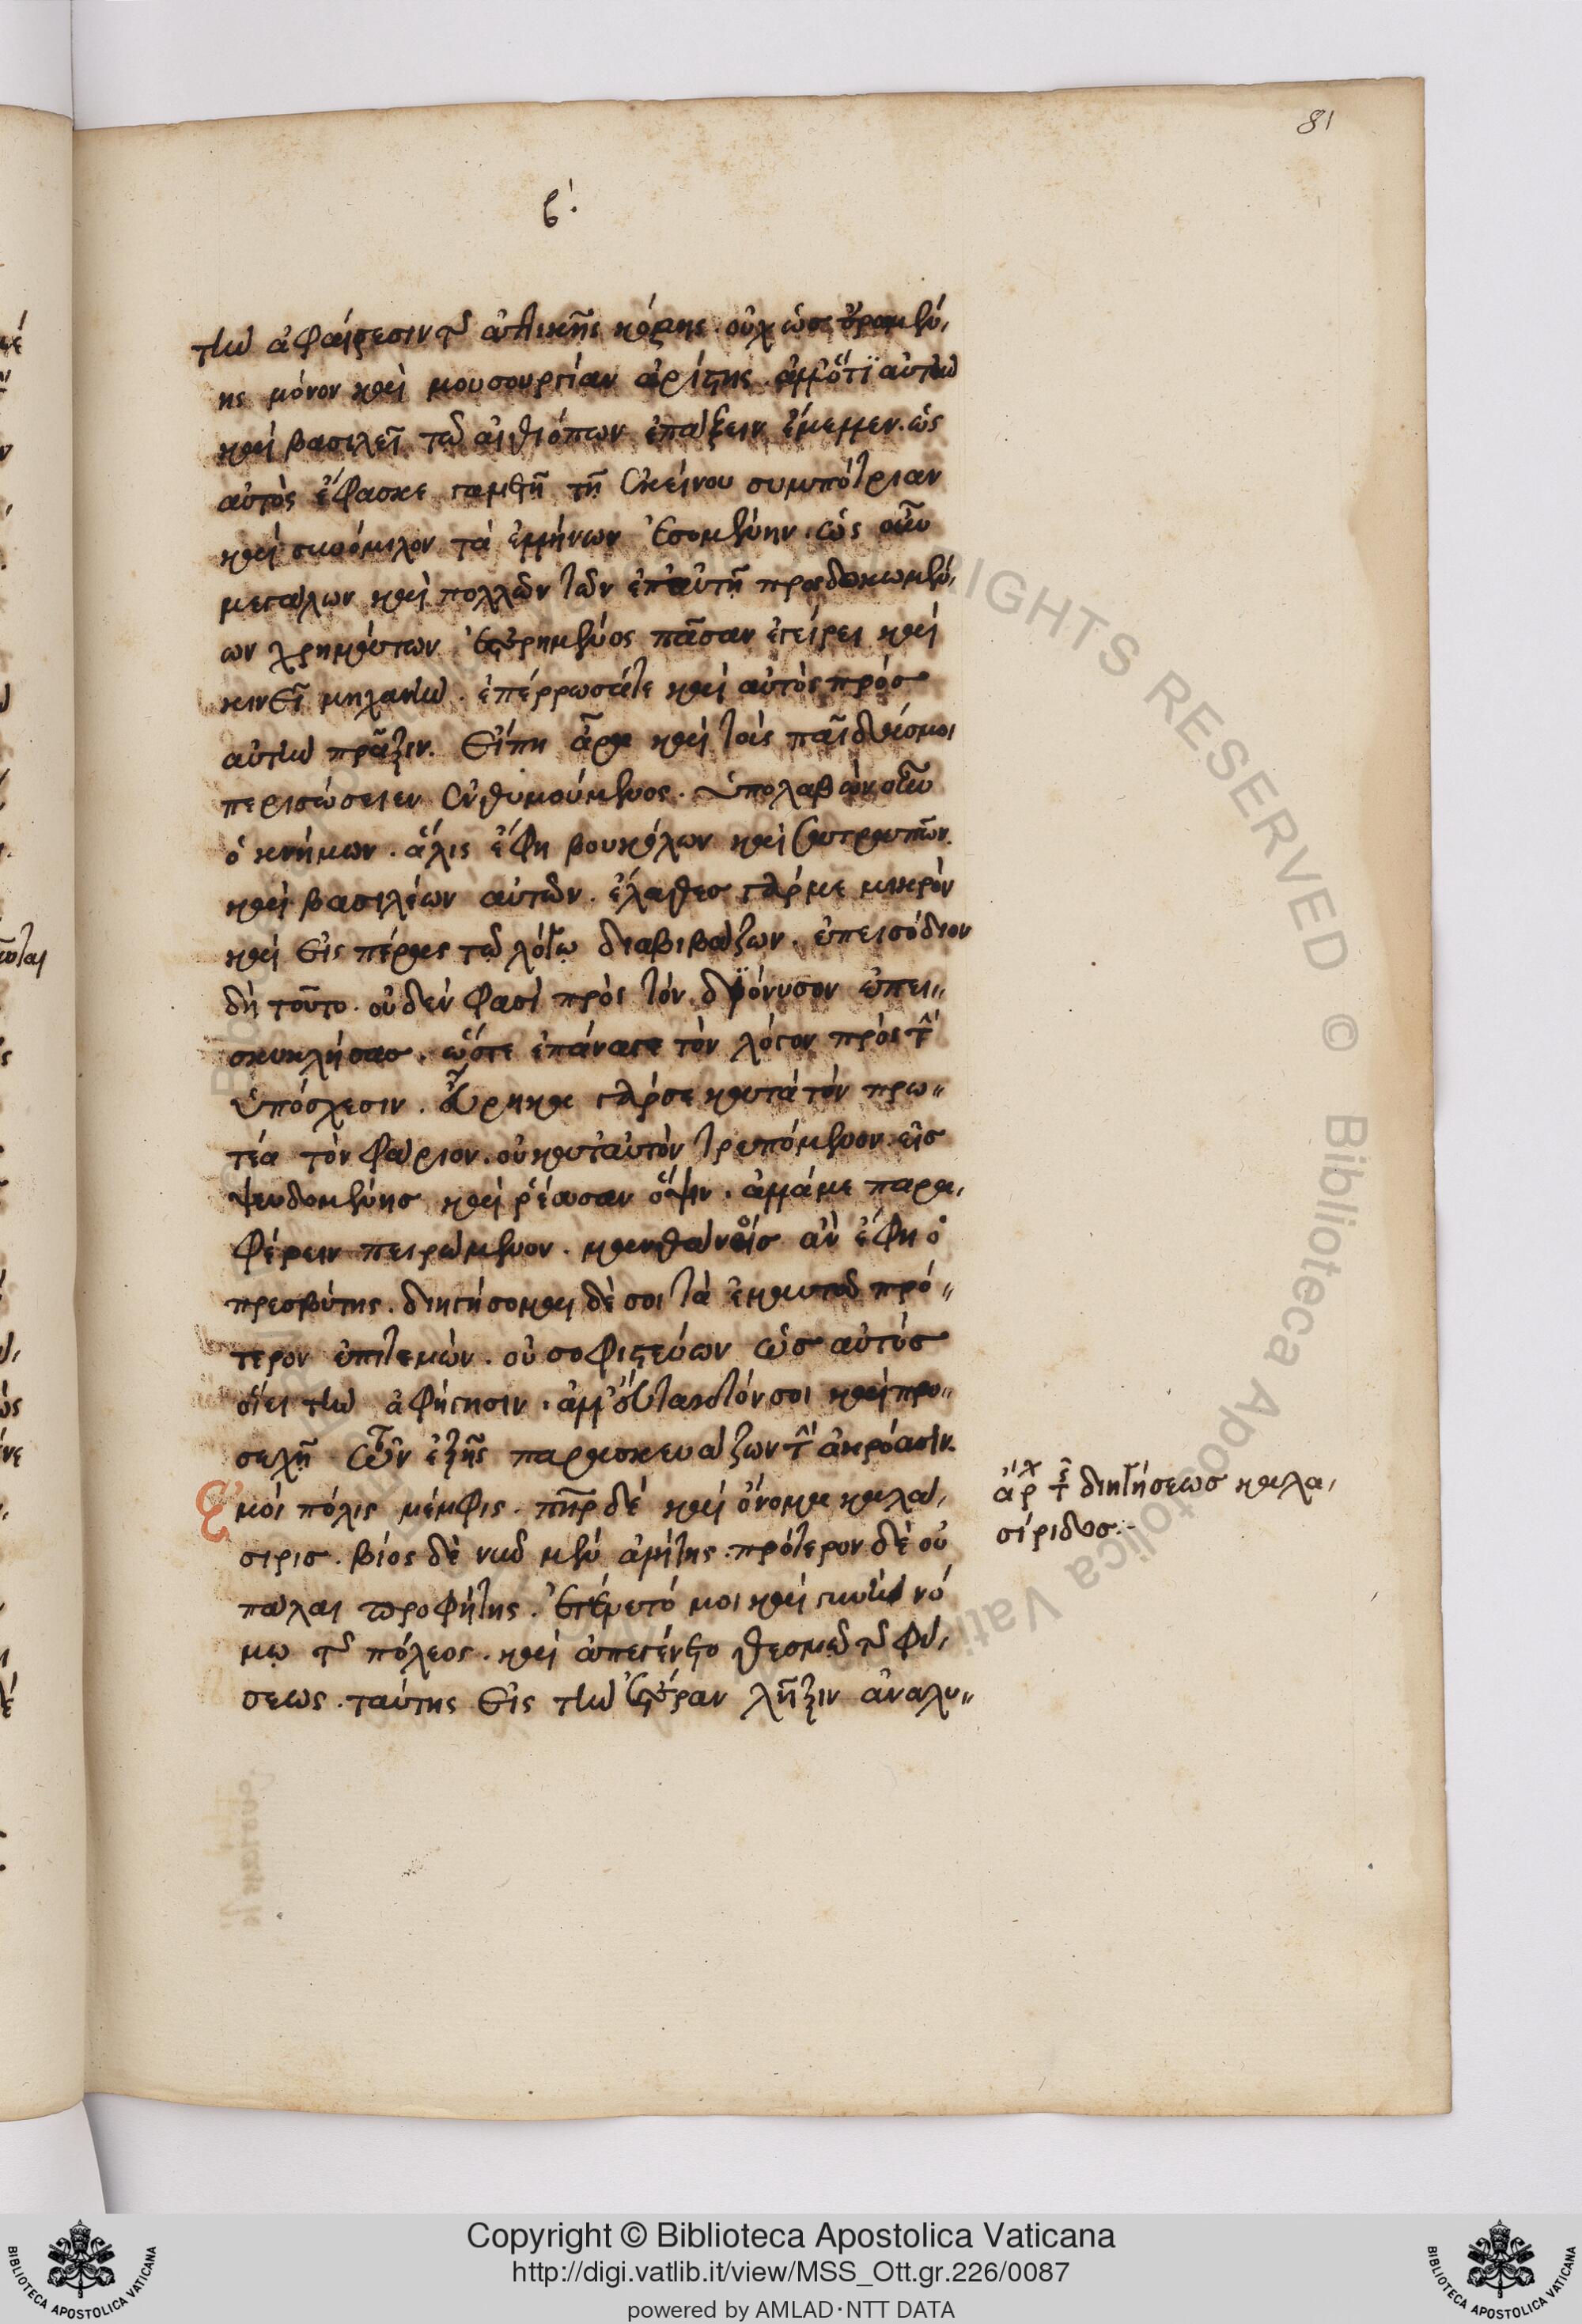 81
β΄.
τὴν ἀφαίρεσιν τῆς ἀττικῆς κόρης. οὐχ ὡς ὁραμέν,
ης μόνον καὶ μουσουργίαν ἀρίστης. ἀλλ' ὅτι αὐτὴν
καὶ βασιλεῖ τῶ αἰθιόπων ἐπάξειν ἔμελλεν. ὡς
αὐτὸς ἔφασκε γαμετῆ τῆ ἐκείνου συμπότριαν
καὶ συνόμιλον τὰ ἑλλήνων ἐσομένην. ὡς οὖν
μεγάλων καὶ πολλῶν τῶν ἐπ' αὐτῆ προσδοκωμέν,
ων χρημάτων ἐστερημένος πᾶσαν ἐγείρει καὶ
κινεῖ μηχανήν. ἐπέρρωσά τε καὶ αὐτὸς πρὸς
αὐτὴν πρᾶξιν. εἴπη ἄρα καὶ τοὺς παῖδάς μοι
περισώσειεν ἐνθυμούμενος. ὑπολαβὼν οὖν
ὁ κνήμων. ἅλις ἔφη βουκόλων καὶ σατραπῶν.
καὶ βασιλέων αὐτῶν. ἔλαθες γάρ με μικρὸν
καὶ εἰς πέρας τῶ λόγω διαβιβάζων. ἐπεισόδιον
δὴ τοῦτο. οὐδέν φασι πρὸς τὸν διόνυσον ἐπει〃
σκυκλήσας. ὥστε ἐπάναγε τὸν λόγον πρὸς τὴν
ὑπόσχεσιν. εὕρηκα γάρ σε κατὰ τὸν πρω〃
τέα τὸν φάριον. οὐ κατ' αὐτὸν τρεπόμενον εἰς
ψευδομένης καὶ ῥέουσαν ὄψιν. ἀλλά με παρα,
φέρειν πειρώμενον. μανθάνοις ἂν ἔφη ὁ
πρεσβύτης. διηγήσομαι δέ σοι τὰ ἐμαυτοῦ πρό〃
τερον ἐπιτεμών. οὐ σοφιστεύων ὡς αὐτὸς
οἴει τὴν ἀφήγησιν. ἀλλ' εὔτακτόν σοι καὶ προ〃
σεχῆ τῶν ἑξῆς παρασκευάζων τὴν ἀκρόασιν.
Ἐμοὶ πόλις μέμφις. πατὴρ δὲ καὶ ὄνομα καλά,
σιρις. βίος δὲ νῦν μὲν ἀλήτης. πρότερον δὲ οὐ
πάλαι προφήτης. ἐγένετό μοι καὶ γυνὴ νό
μω τῆς πόλεος. καὶ ἀπεγένετο θεσμῶ τῆς φύ,
σεως. ταύτης εἰς τὴν ἑτέραν λῆξιν ἀναλυ〃
ἀρχ τῆς διηγήσεως καλα,
σίριδος:-
RIGHTS RESERVED © Biblioteca Apostolica Vaticana
Copyright © Biblioteca Apostolica Vaticana
http://digi.vatlib.it/view/MSS_Ott.gr.226/0087
powered by AMLAD·NTT DATA
BIBLIOTECA APOSTOLICA VATICANA
BIBLIOTECA APOSTOLICA VATICANA